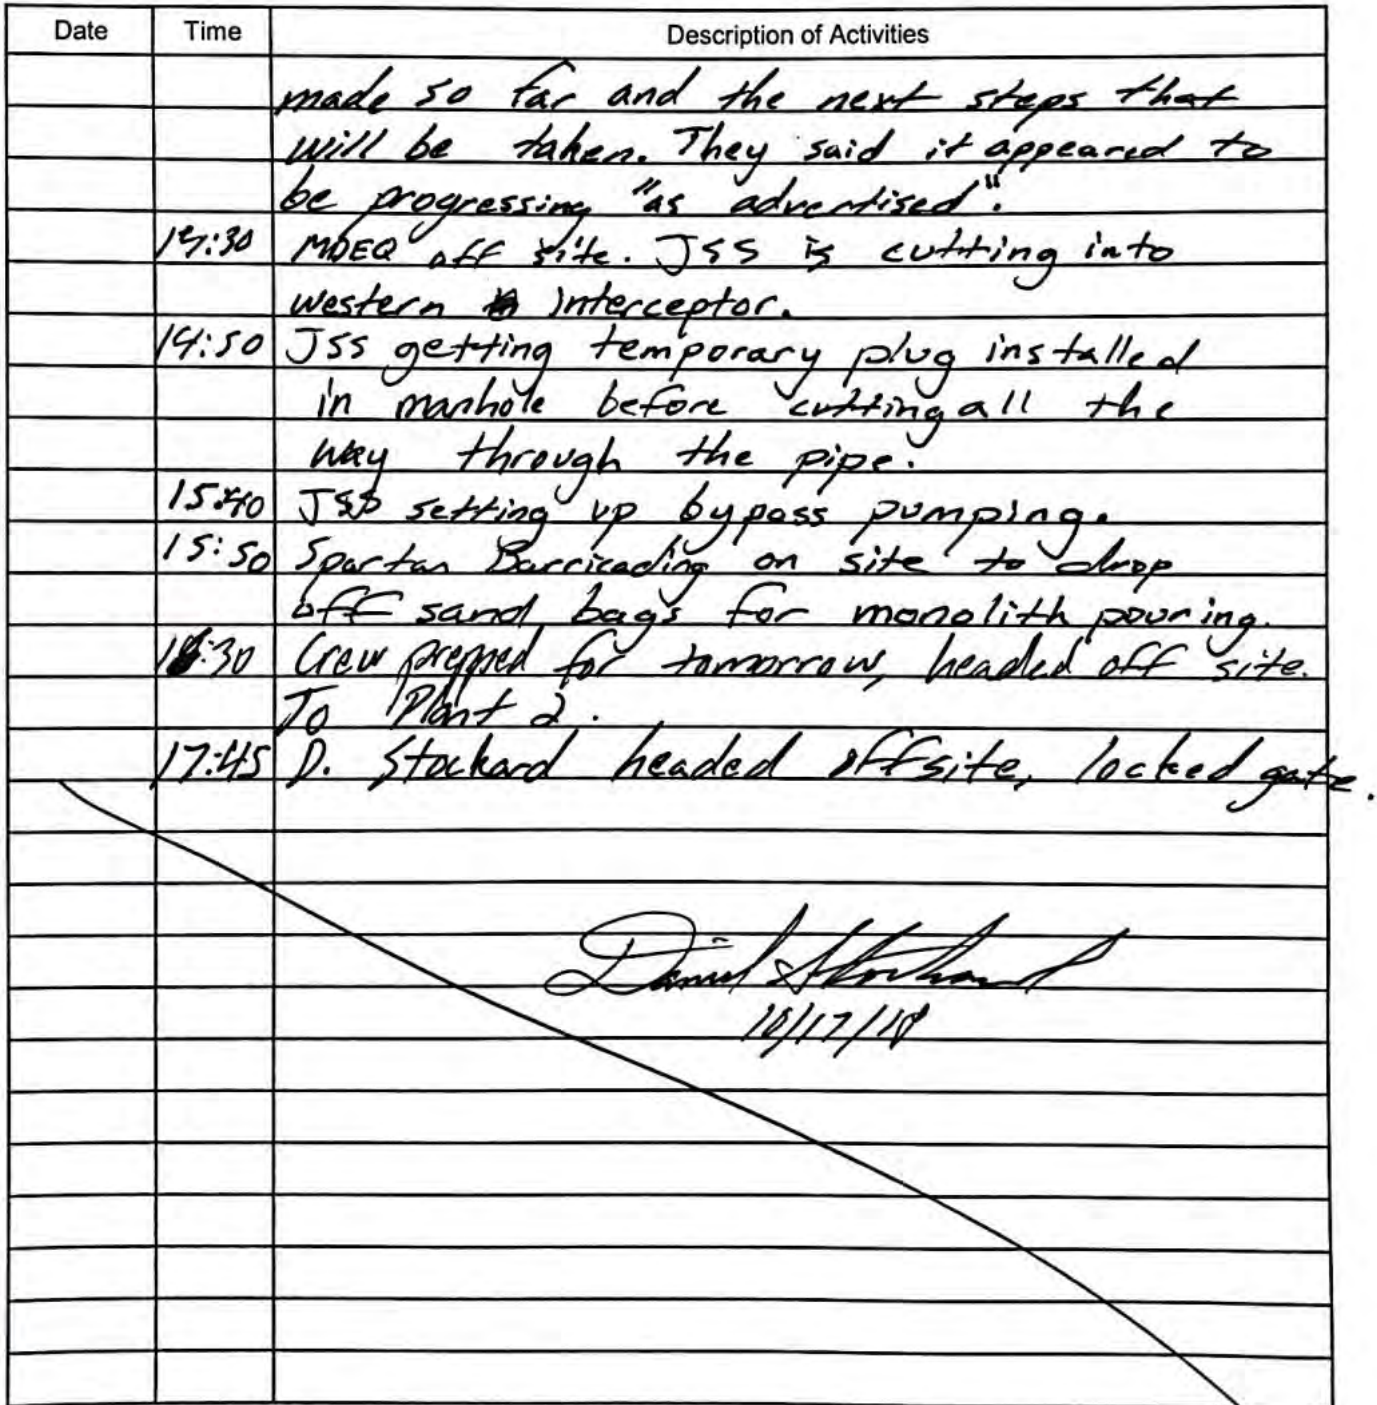 Date Time Description of Activities
made so far and the next steps that
will be taken. They said it appeared to
be progressing "as advertised".
14:30 MDEQ off site. JSS is cutting into
western interceptor.
14:50 JSS getting temporary plug installed
in manhole before cutting all the
way through the pipe.
15:40 JSS setting up bypass pumping.
15:50 Spartan Barricading on site to drop
off sand bags for monolith pouring.
:30 Crew prepped for tomorrow, headed off site.
To Plant 2.
17:45 D. Stockard headed offsite, locked gate.
Daniel Stockard
10/17/18